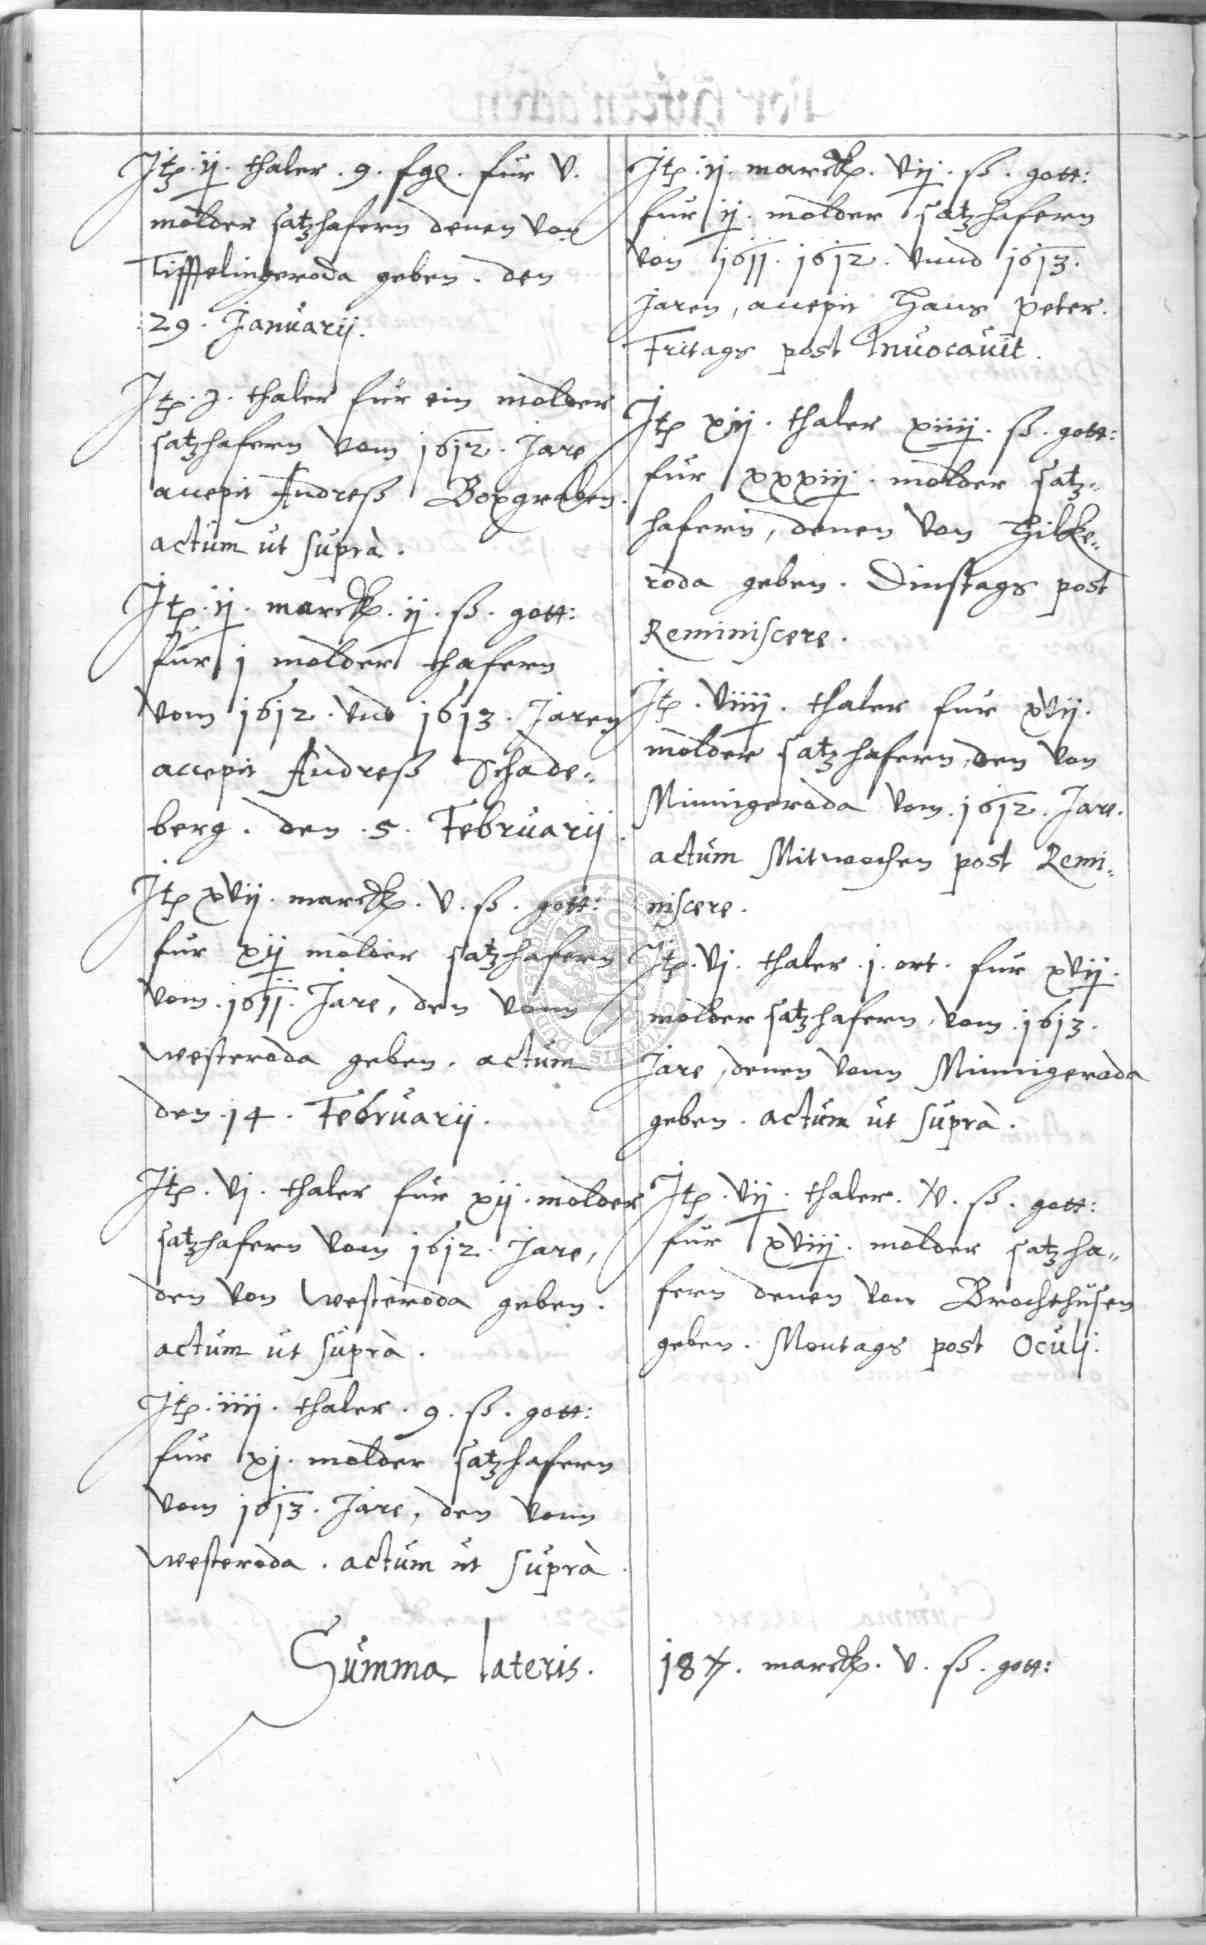 Itp. ij. thaler. 9. fgl. für v.
molder satzhafern denen von
Tiffelingeroda geben. den
29. Januarij.
Itp. j. thaler für ein molder
satzhafern vom 1612. Jare
accepit Andreß Boxgraben.
actum ut suprà.
Itp. ij. marck. ij. ß. gott:
für j molder hafern
vom 1612. vnd 1613. Jaren
accepit Andreß Schade-
berg. den. 5. Februarij.
Itp xvij. marck. v. ß. gott:
für xij molder satzhafern
vom. 1611. Jare, den vonn
westeroda geben. actum
den. 14. Februarij.
Itp. vj. thaler für xij. molder
satzhafern vom 1612. Jare,
den von westeroda geben.
actum ut suprà.
Itp. iiij. thaler. 9. ß. gott:
für xj. molder satzhafern
vom 1613. Jare, den vonn
westeroda. actum ut suprà.
Itp. ij. marck. vij. ß. gott:
für ij. molder satzhafern
von 1611. 1612. vnnd 1613.
Jaren, accepit Hans Peter.
Fritags post Invocavit.
Itp xij. thaler xiiij. ß. gott:
für xxxiij. molder satz-
hafern, denen von Hilke-
roda geben. Dinstags post
Reminiscere.
Itp. viiij. thaler für xvij.
molder satzhafern, den von
Minnigeroda vom. 1612. Jare.
actum Mitwochen post Remi-
niscere.
Itp. vj. thaler. j. ort. für xvij.
molder satzhafern, vom. 1613.
Jare, denen vonn Minnigeroda
geben. actum ut suprà.
Itp. vij. thaler. v. ß. gott:
für xviij. molder satzha-
fern denen von Brochthusen
geben. Montags post Oculj.
Summa lateris. 187. marck. v. ß. gott: